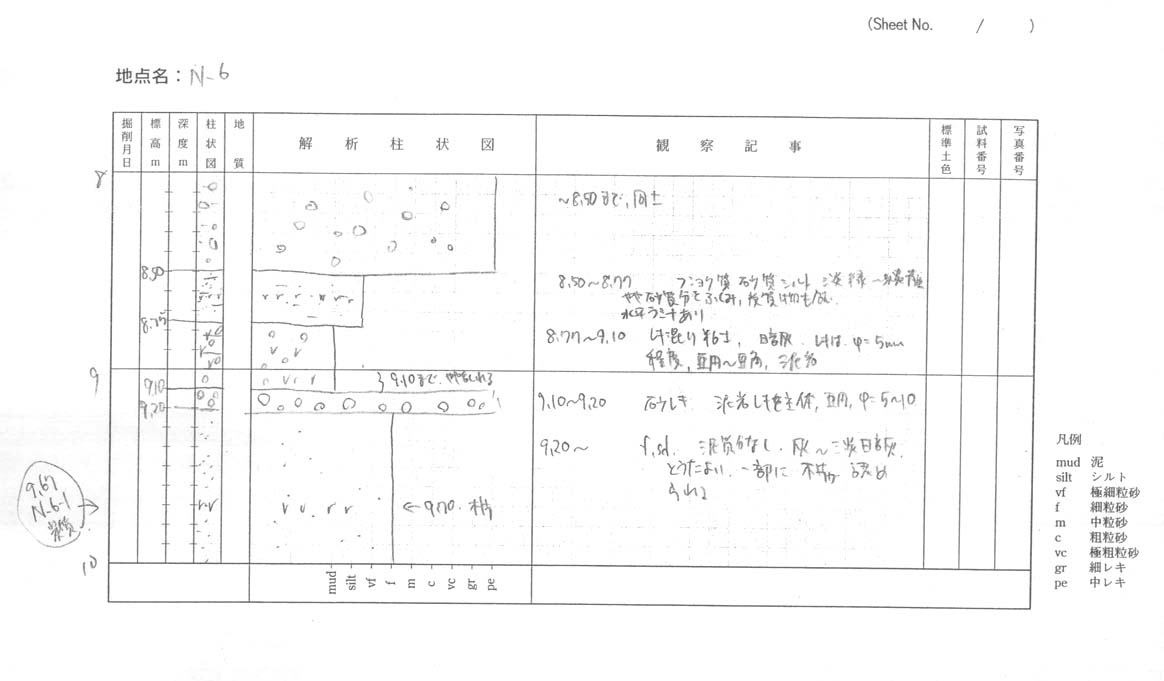 (Sheet No. / )
地点名：N-6
掘削月日 標高m 深度m 柱状図 地質 解析柱状図 観察記事 標準土色 試料番号 写真番号
8
~8.50まで、同土
8.50
8.50~8.77 フショク質 砂質シルト 淡緑~
やや砂質分をふくみ,
水平ラミナあり
8.75
8.77~9.10 レキ混り粘土, 暗灰. レキは. φ=5mm
程度, 亜円~亜角,
9
9.10
}9.10まで.
9.20
9.10~9.20 砂レキ 主体, 亜円, φ=5~10
9.20~ f.sd. 泥質分なし. 灰~淡暗灰.
とうたよい. 一部に 木片 認め
られる
9.67
N-6-1
←9.70. 木片
10
mud silt vf f m c vc gr pe
凡例
mud 泥
silt シルト
vf 極細粒砂
f 細粒砂
m 中粒砂
c 粗粒砂
vc 極粗粒砂
gr 細レキ
pe 中レキ